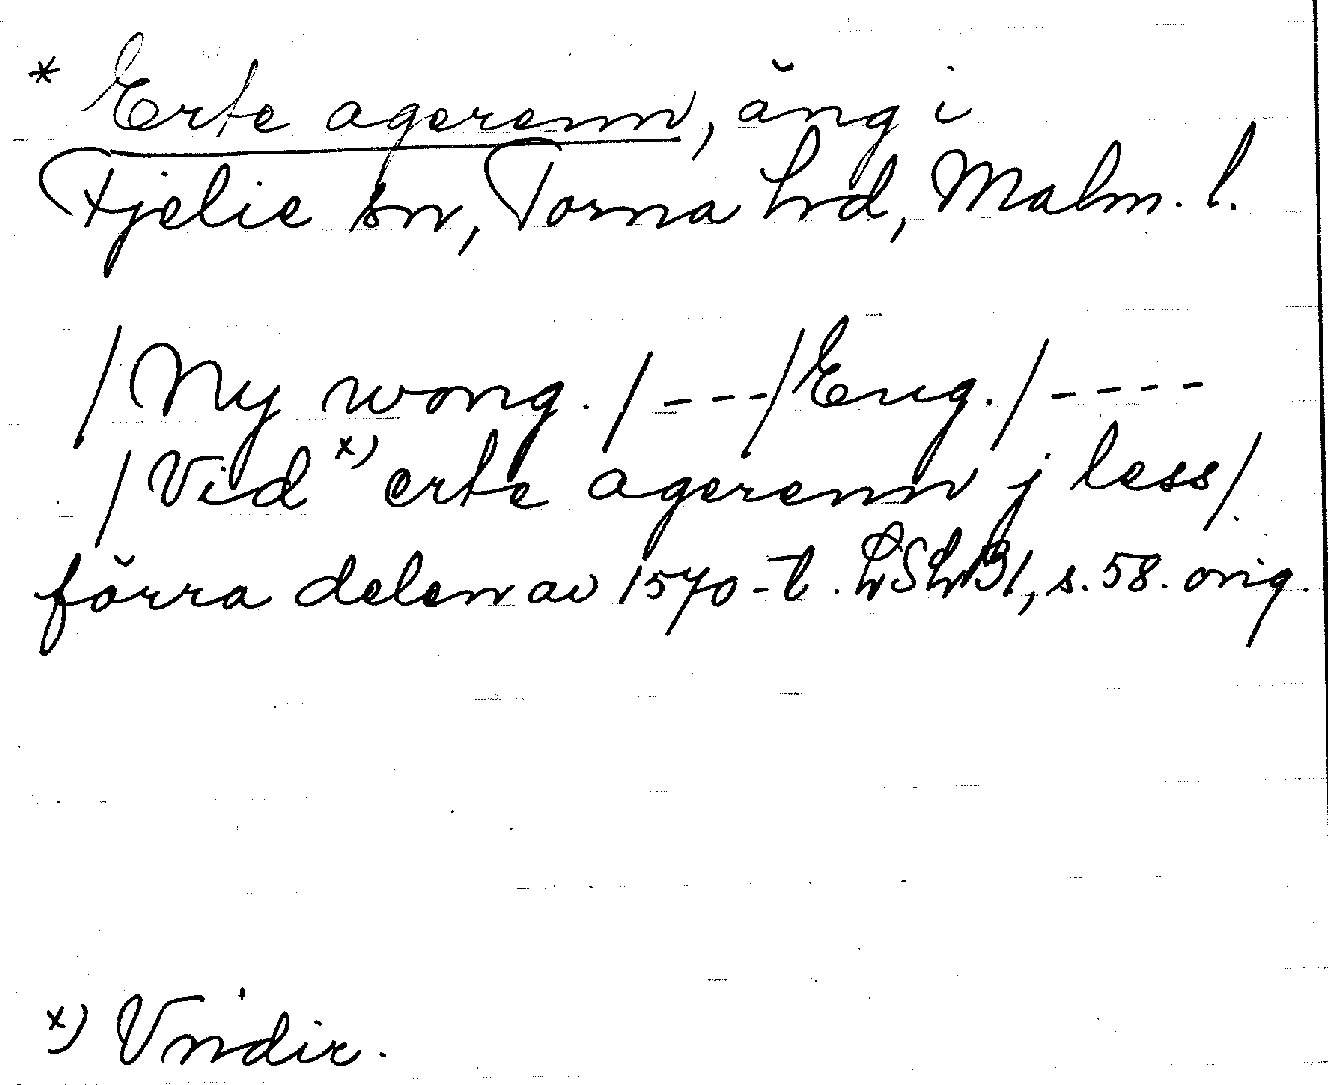 * Erte agerenn, äng i
Fjelie sn, Torna hrd, Malm. l.
/Ny wong./---/Eng./----
/Vid x) erte agerenn j less/
förra delen av 1570-t. LSLB1, s. 58. orig.
x) Vndir.